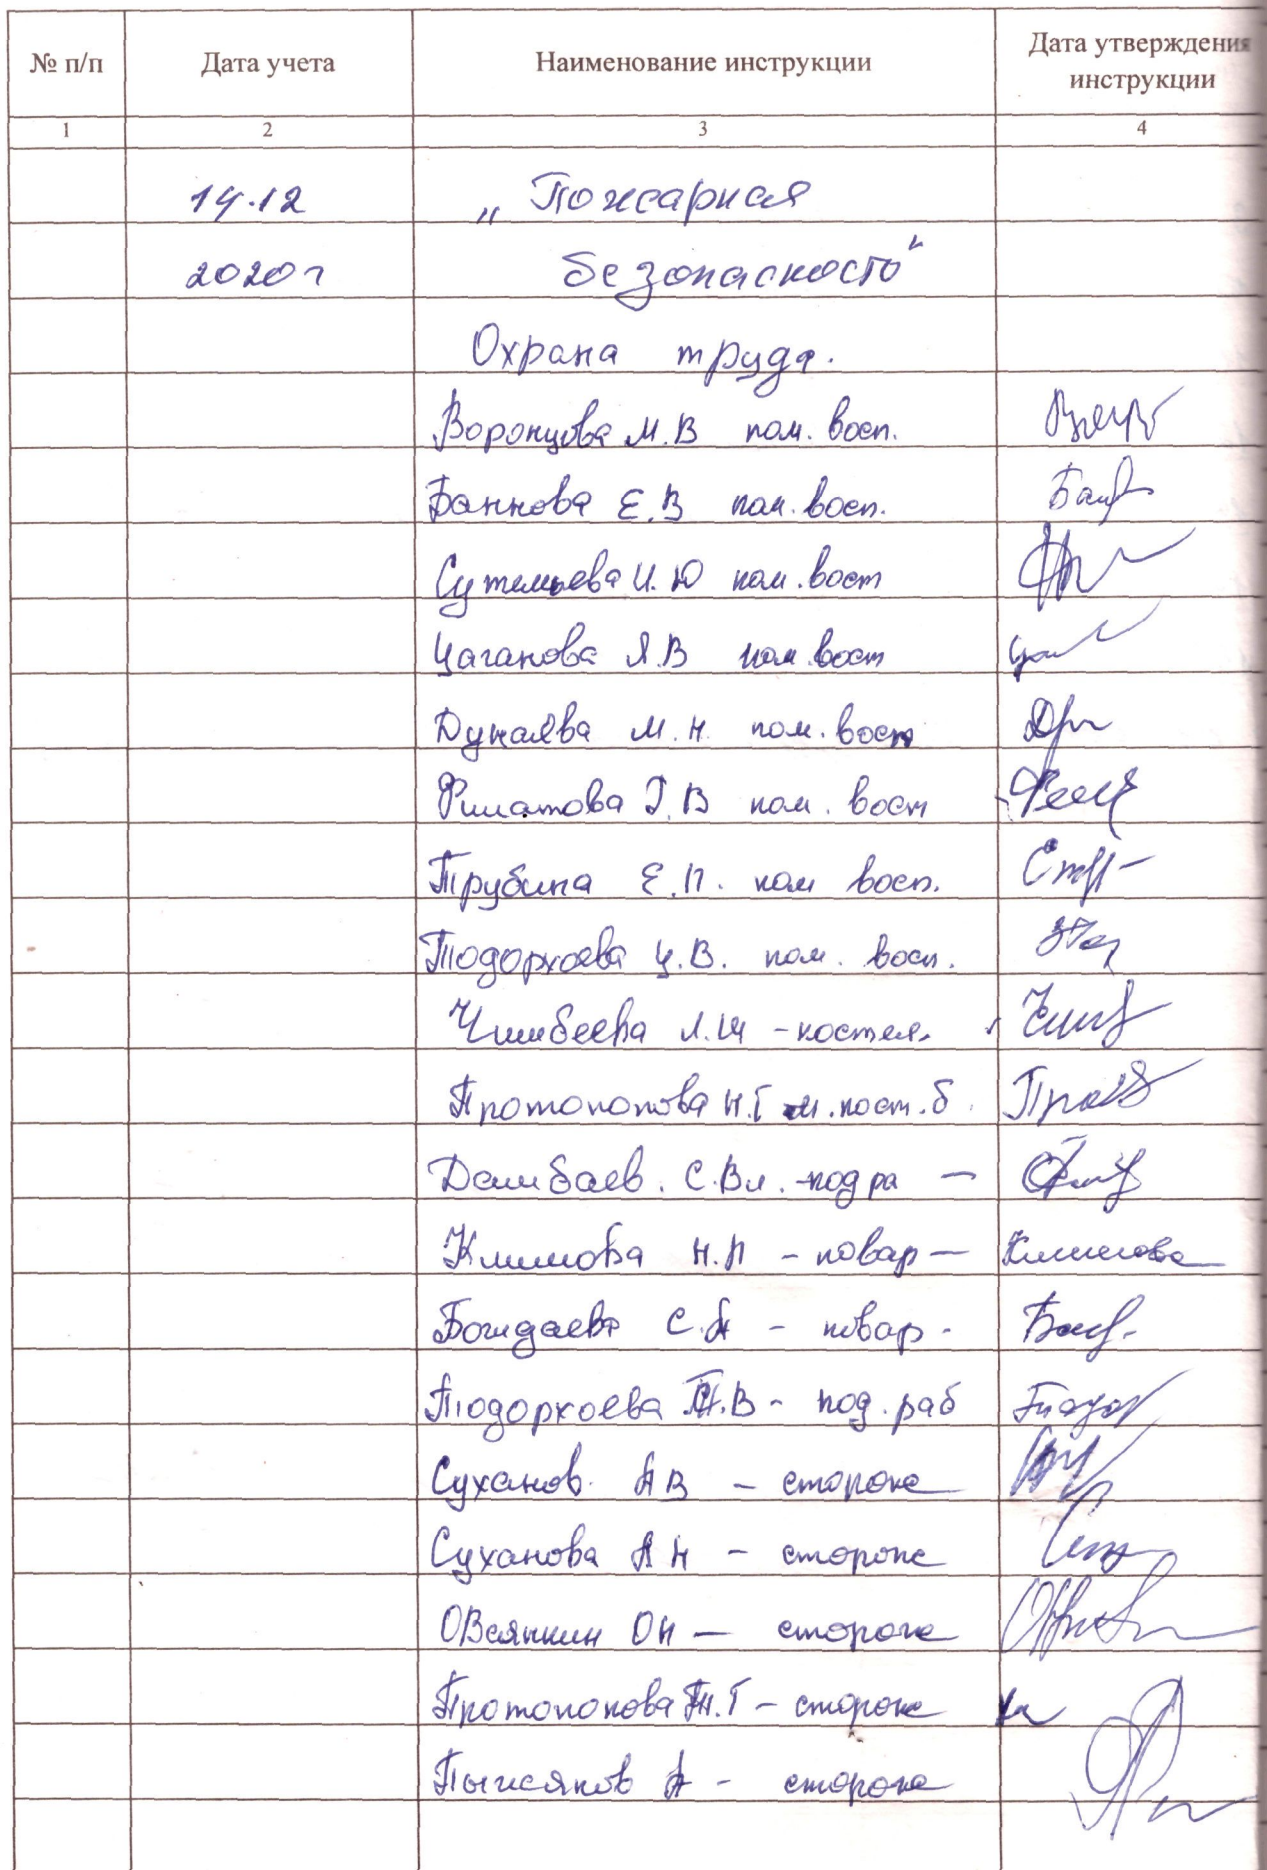 № п/п Дата учета Наименование инструкции Дата утверждения инструкции
1 2 3 4
14.12 „Пожарная
2020г безопасность"
Охрана труда.
Воронцова М.В пом. восп.
Баннова Е.В пом. восп.
Сутемьева И.Ю пом. восп
Цаганова Я.В пом. восп
Дунаева М.Н. пом. восп
Филатова Г.В пом. восп
Трубина Е.П. пом восп.
Тодорхоева Ц.В. пом. восп.
Чимбеева Л.Ш - костел.
Протопопова Н.Г м.пост.б.
Дамбаев. С.Вл. - подра —
Климова Н.П - повар — Климова
Богидаева С.А - повар -
Тодорхоева В - под. раб
Суханов. АВ - сторож
Суханова АН - сторож
Овсянкин ОН — сторож
Протопопова Н.Г - сторож
А - сторож